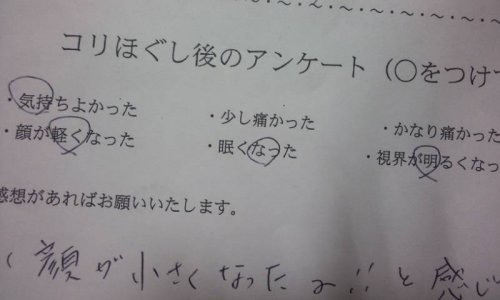 コリほぐし後のアンケート（○をつけて
・気持ちよかった ・少し痛かった ・かなり痛かった
・顔が軽くなった ・眠くなった ・視界が明るくなっ
感想があればお願いいたします。
顔が小さくなった!! と感じ